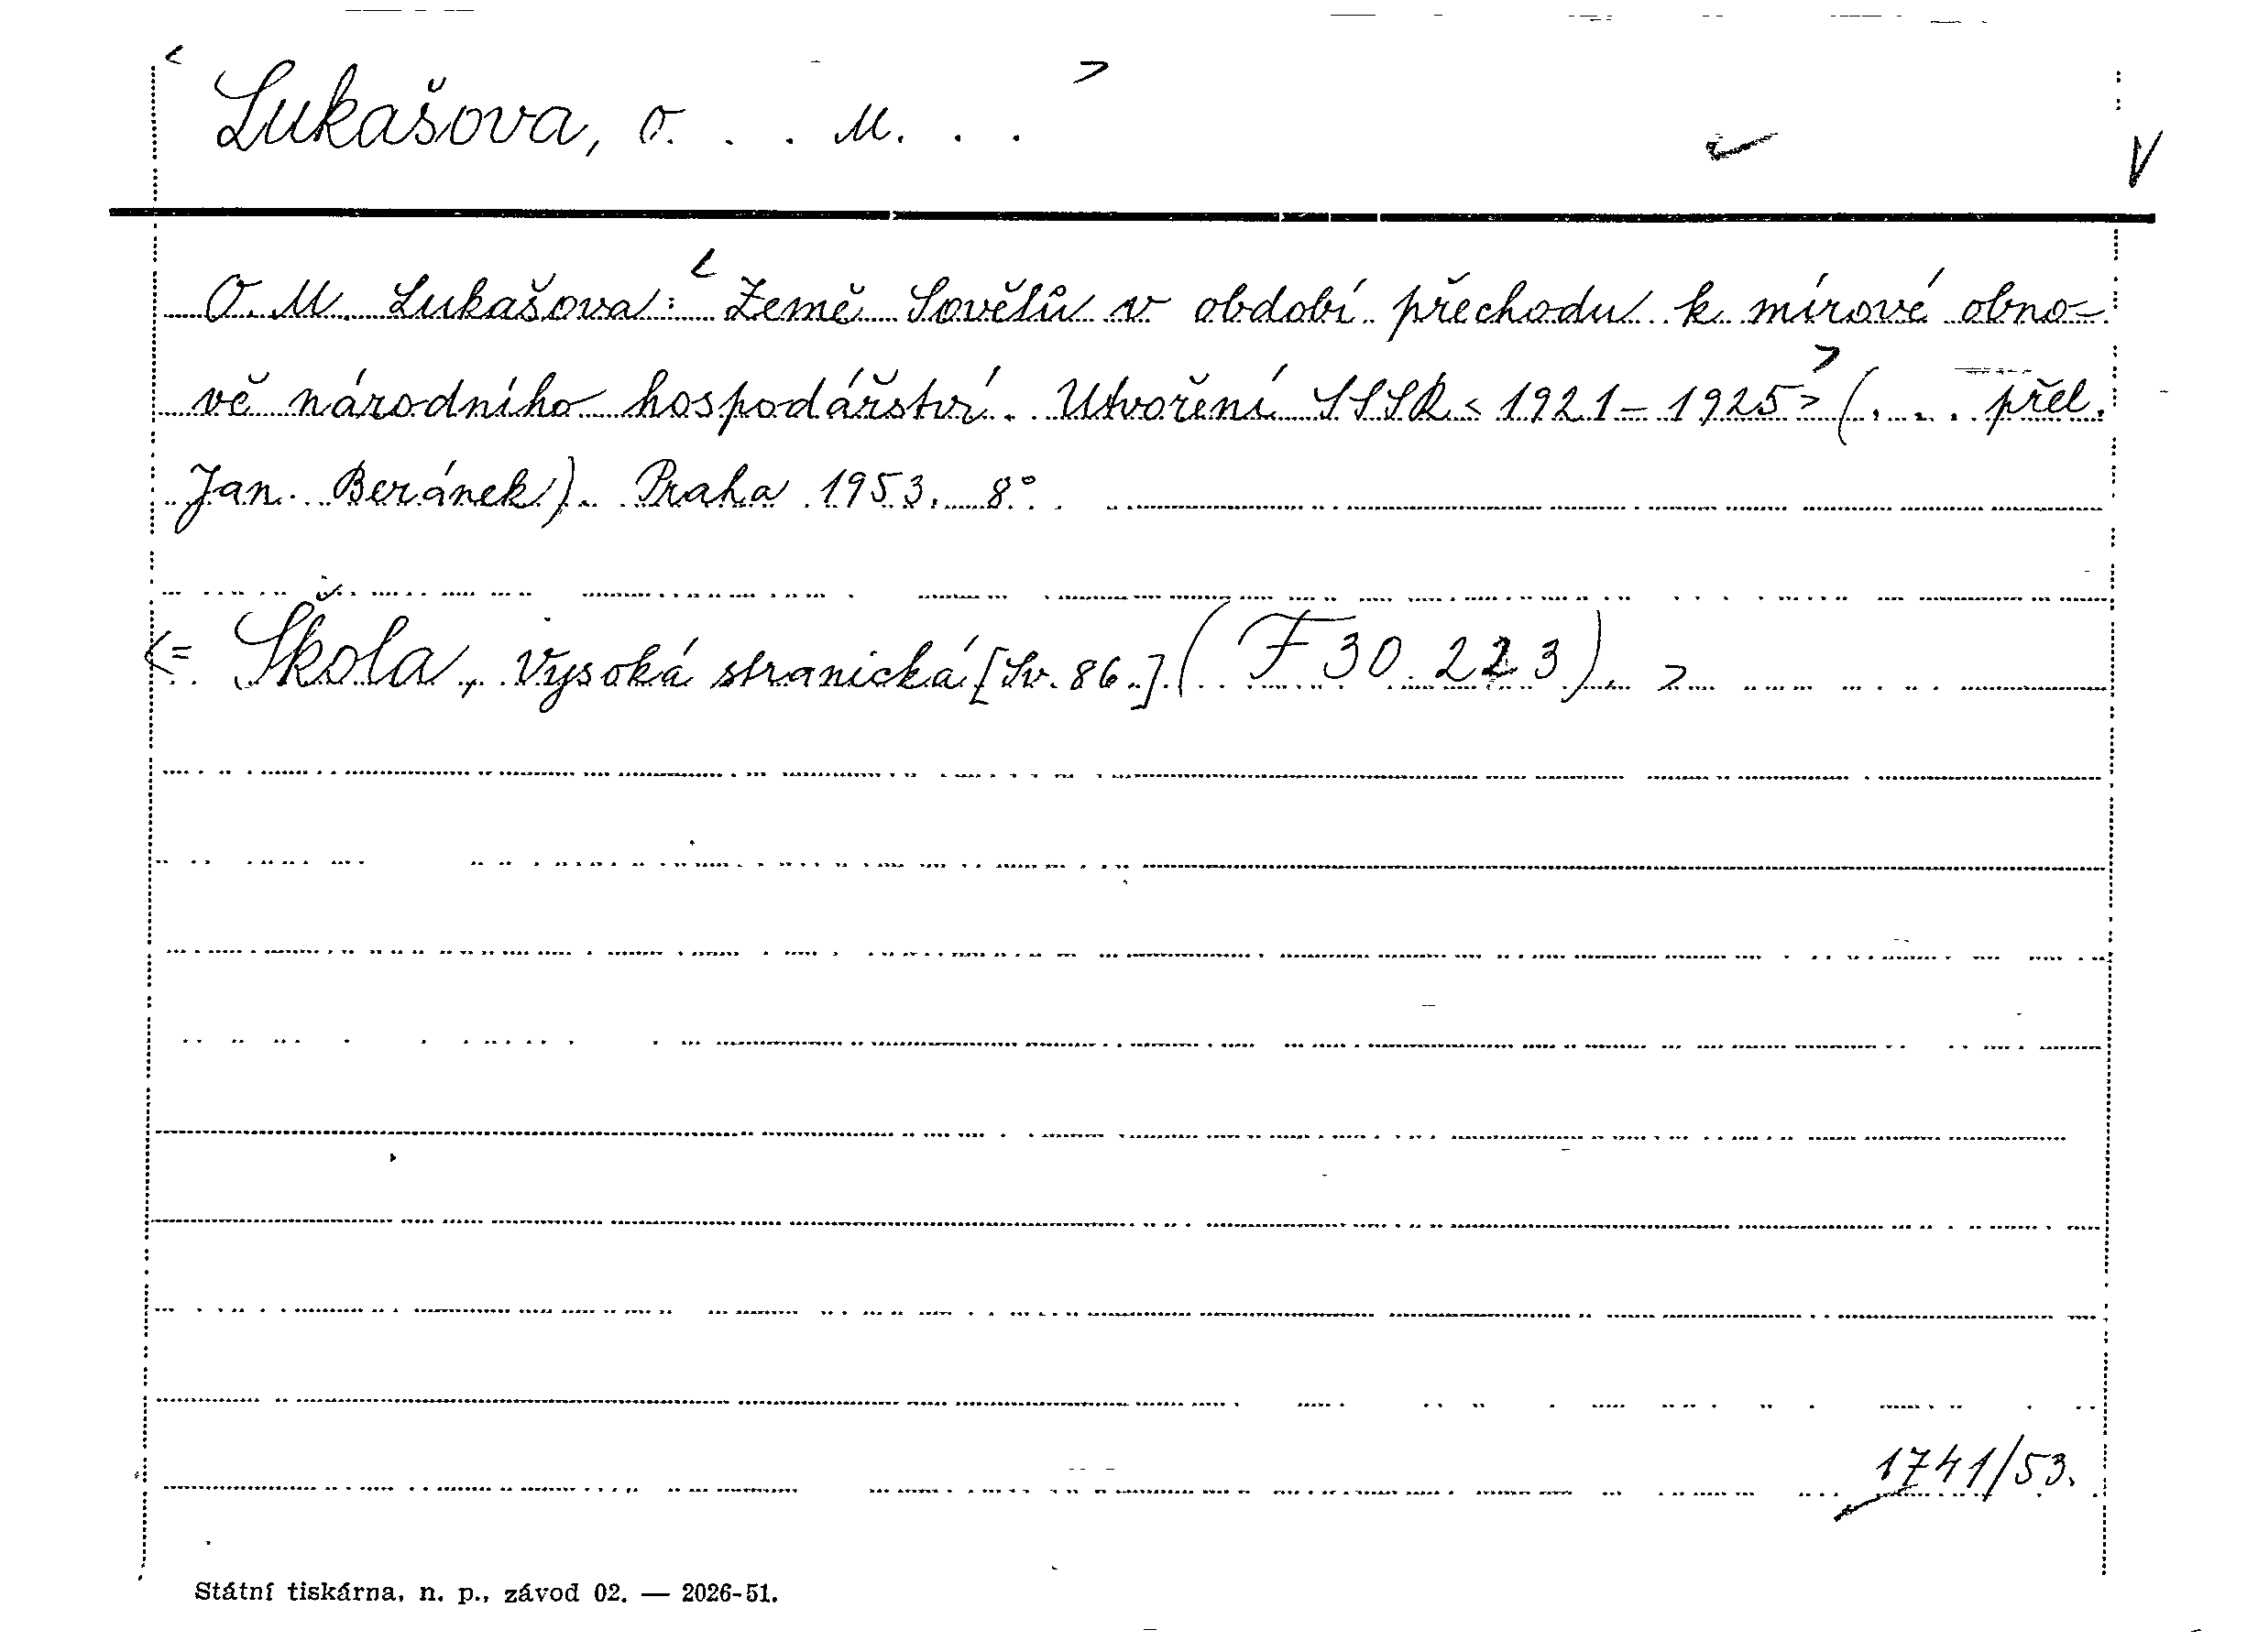 < Lukašova, O. . . M. . . >
O. M. Lukašova: < Země Sovětů v období přechodu k mírové obno-
vě národního hospodářství. Utvoření SSSR < 1921 - 1925 > > (. . . přel.
Jan Beránek). Praha 1953. 8°.
<= Škola, Vysoká stranická [Sv. 86.] (F 30.223). >
1741/53.
Státní tiskárna, n. p., závod 02. — 2026-51.